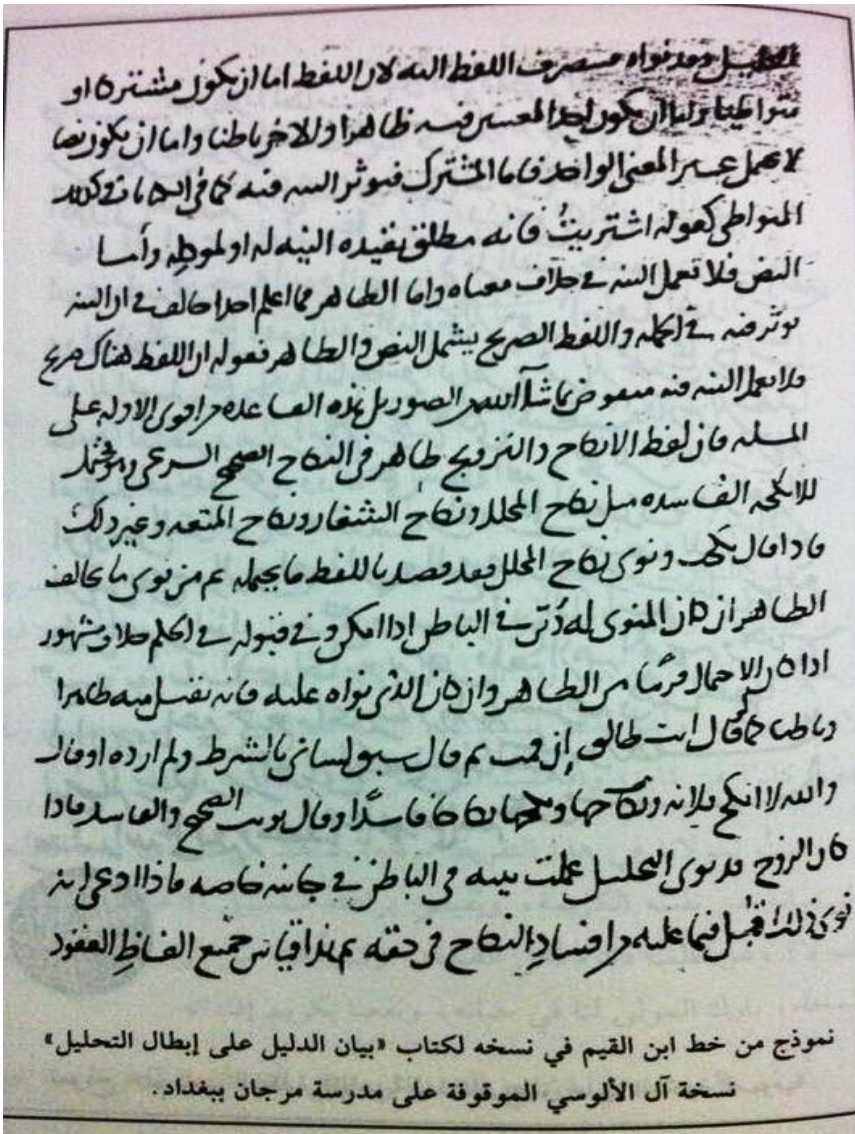 التحليل وقد نواه مصرف اللفظ اليه لان اللفظ اما ان يكون مشتركا او
متواطيا واما ان يكون احد المعنيين فيه ظاهرا وللاخر باطنا واما ان يكون نصا
لا يحتمل غير المعنى الواحد فاما المشترك فتوثر النيه فيه كما في الكنايات وكذلك
المتواطى كقوله اشتريت فانه مطلق تقيده النيه له او لموكله وأما
النص فلا تعمل النيه في خلاف معناه واما الظاهر فما اعلم احدا خالف في ان النيه
توثر فيه في الجمله واللفظ الصريح يشمل النص والظاهر فقوله ان اللفظ هناك صريح
فلا تعمل النيه فيه منقوض بما شاء الله من الصور بل هذه القاعده من اقوى الادله على
المسله فان لفظ الانكاح والتزويج ظاهر في النكاح الصحيح الشرعي وهو محتمل
للانكحه الفاسده مثل نكاح المحلل ونكاح الشغار ونكاح المتعه وغير ذلك
فاذا قال نكحت ونوى نكاح المحلل فقد قصد باللفظ ما يحتمله ثم من نوى ما يخالف
الظاهر ان كان المنوى له دُيّن في الباطن اذا امكن وفي قبوله في الحكم خلاف مشهور
اذا كان الاحتمال قريبا من الظاهر وان كان الذي نواه عليه فانه تقبل منه ظاهرا
وباطنا كما لو قال انت طالق إن قمت ثم قال سبق لساني بالشرط ولم ارده او قال
والله لا انكح فلانه ونكاحها فاسدًا وقال نويت الصحيح والفاسد فاذا
كان الزوج قد نوى التحليل عملت نيته في الباطن في جانبه خاصه فاذا ادعى انه
نوى ذلك قُبِل فيما عليه من افسادِ النكاح في حقه ثم هذا قياس جميع الفاظِ العقود
نموذج من خط ابن القيم في نسخه لكتاب «بيان الدليل على إبطال التحليل»
نسخة آل الألوسي الموقوفة على مدرسة مرجان ببغداد.